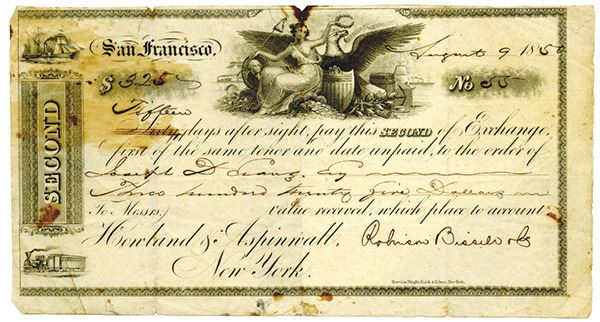 San Francisco, August 9 1850
$ 325 No 55
SECOND
Fifteen
Thirty days after sight, pay this SECOND of Exchange,
first of the same tenor and date unpaid, to the order of
Joseph D Esq
Three hundred twenty five Dollars
To Messrs, value received, which place to account
Howland & Aspinwall, Robinson Bissell & Co
New York.